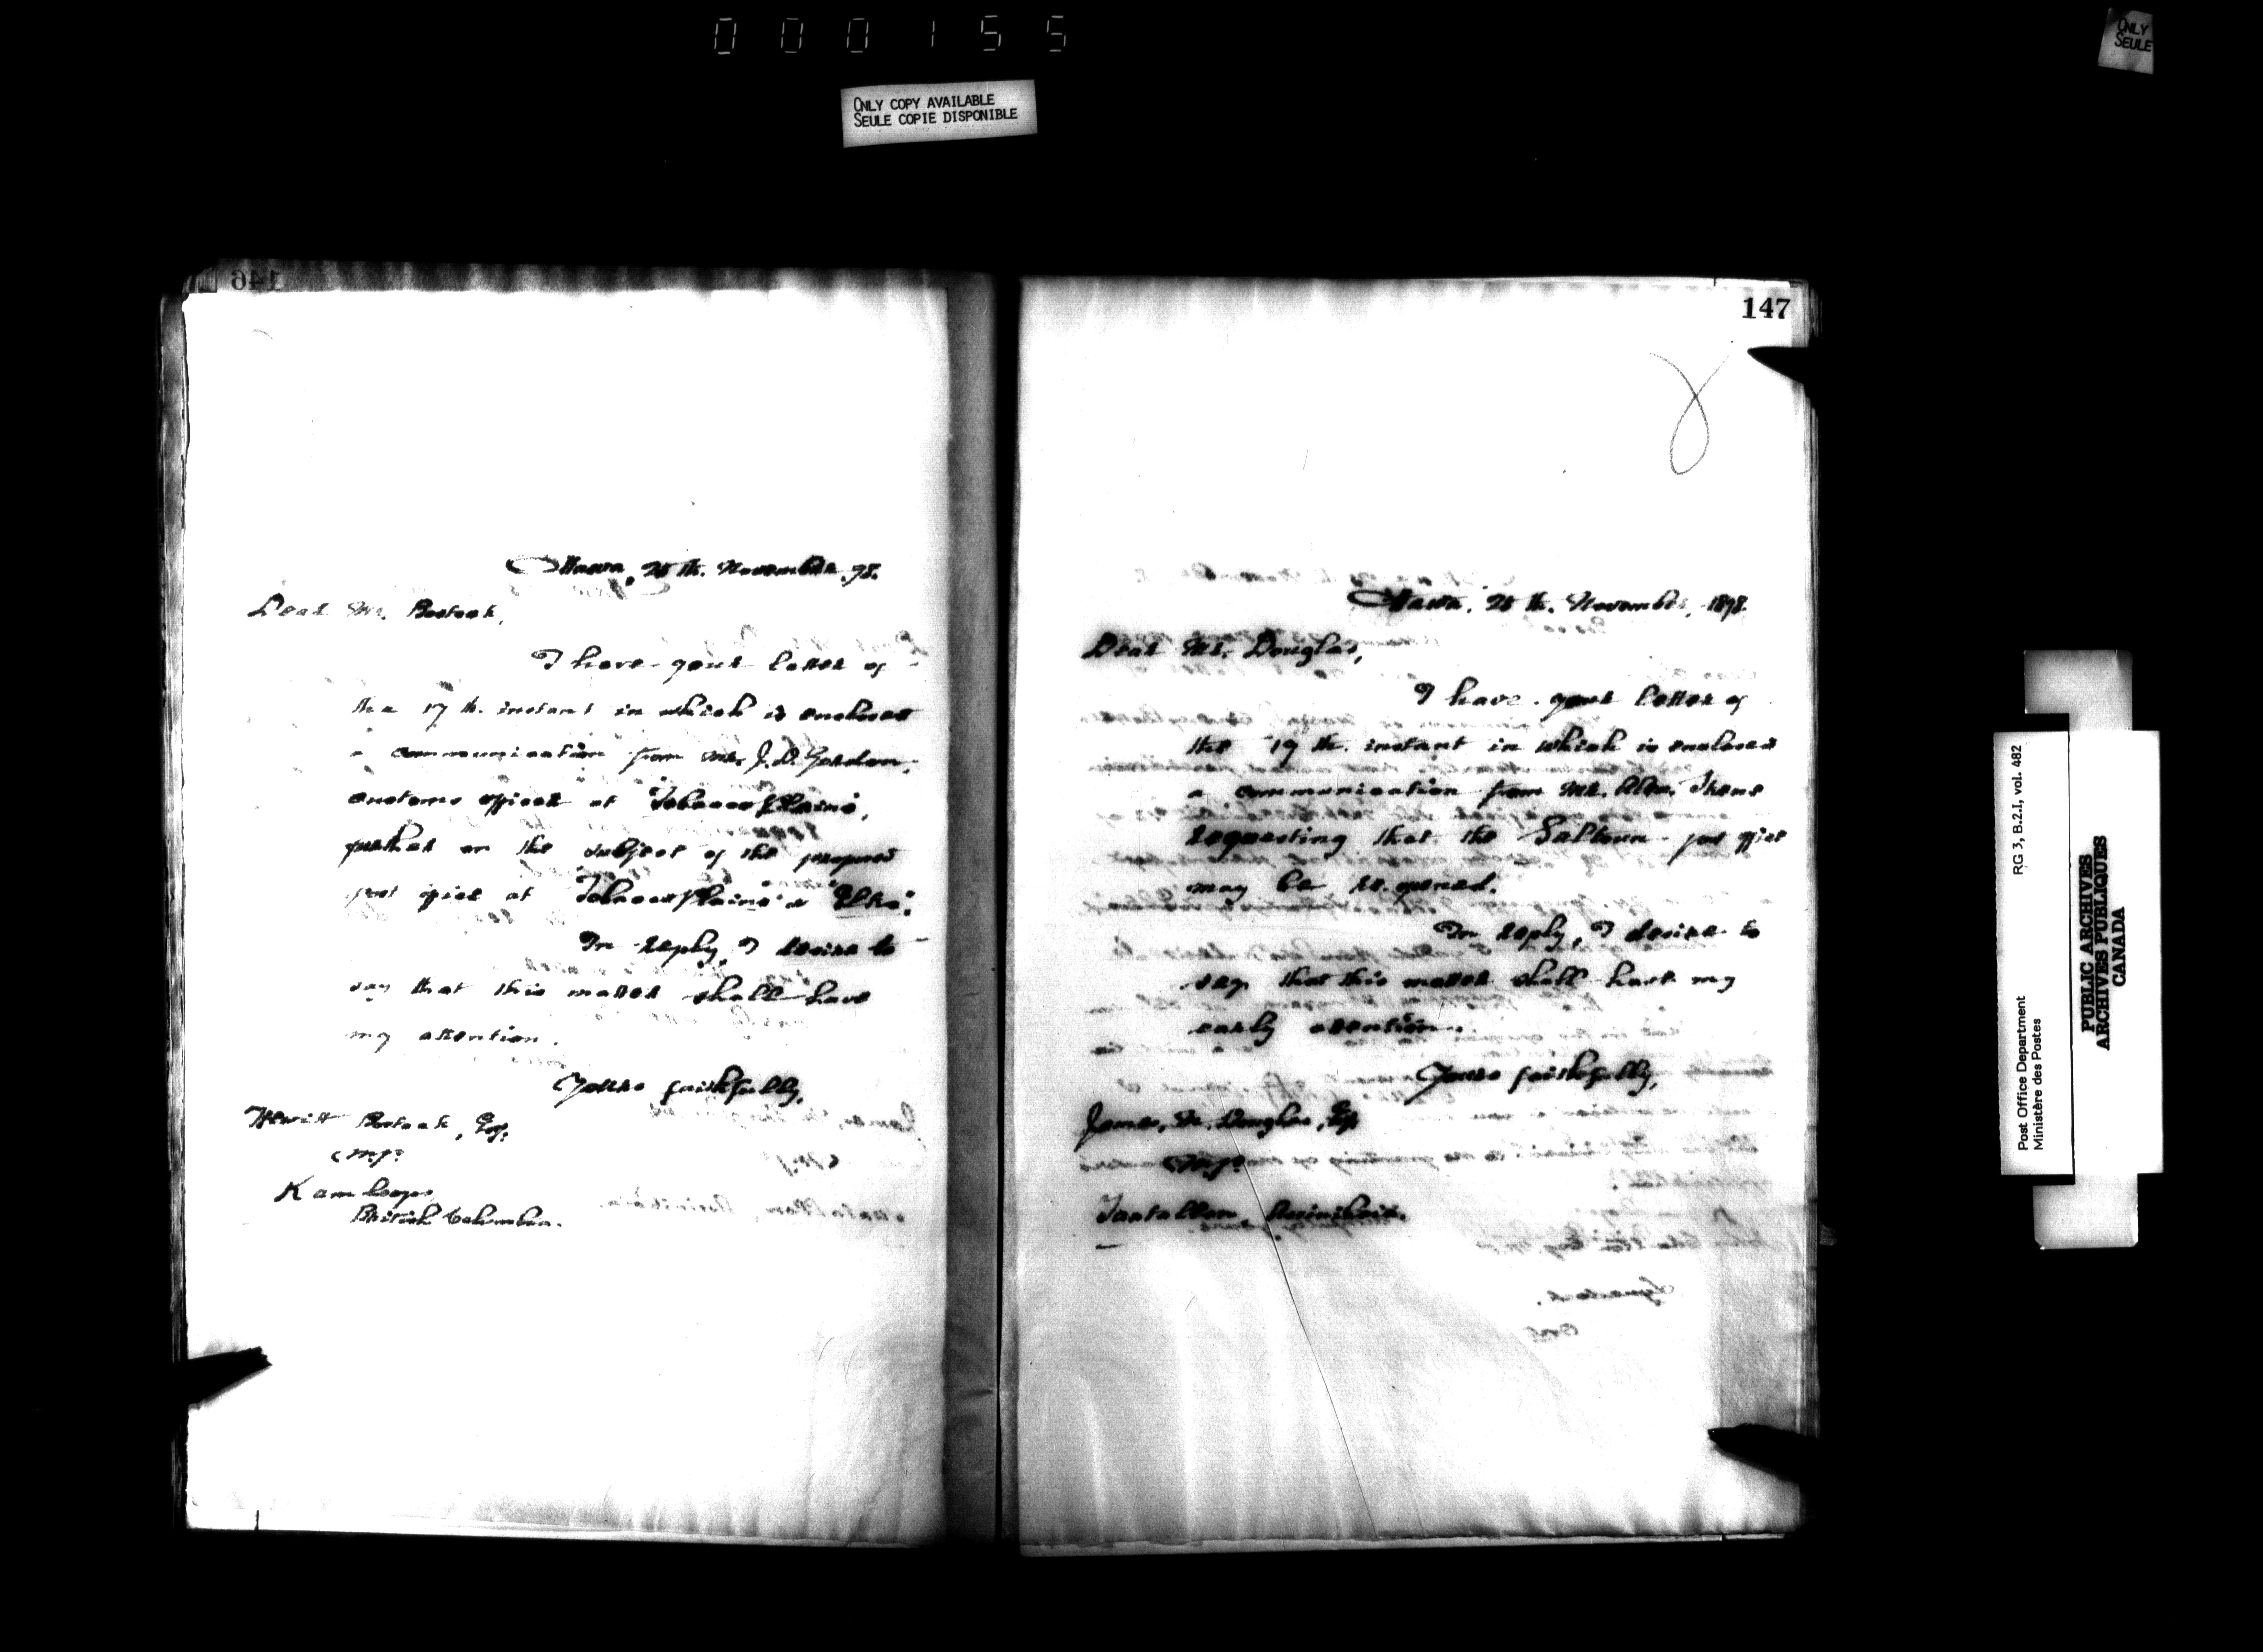 000155
ONLY COPY AVAILABLE
SEULE COPIE DISPONIBLE
ONLY
SEULE
146
Ottawa, 25th. November. 98.
Dear Mr. Bostock,
I have your letter of
the 17th. instant in which is enclosed
a communication from Mr. J. D. Gordon,
customs officer at Tobacco Plains,
further on the subject of the proposed
post office at Tobacco Plains or "Elko".
In reply, I desire to
say that this matter shall have
my attention.
Yours faithfully,
Hewitt Bostock, Esq.
M.P.
Kamloops,
British Columbia.
147
Ottawa, 25th. November, 1898.
Dear Mr. Douglas,
I have your letter of
the 19th. instant in which is enclosed
a communication from Mr. Alex.
requesting that the Saltoun post office
may be re-opened.
In reply, I desire to
say that this matter shall have my
early attention.
Yours faithfully,
James M. Douglas, Esq.
M.P.
Tantallon, Assiniboia.
RG 3, B.2.1, vol. 482
Post Office Department
Ministère des Postes
PUBLIC ARCHIVES
ARCHIVES PUBLIQUES
CANADA